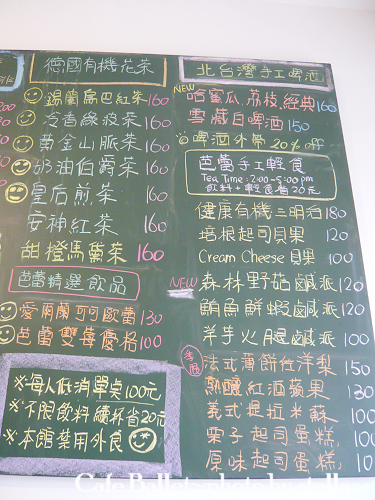 德國有機花茶
錫蘭烏巴紅茶 160
冷香綠拔茶 160
黃金山脈茶 160
奶油伯爵茶 160
皇后煎茶 160
安神紅茶 160
甜橙馬黛茶 160
芭蕾精選飲品
愛用蘭可可歐蕾 130
芭蕾雙莓優格 100
※每人低消單点100元
※不限飲料續杯省20元
※本館禁用外食
北台灣手工啤酒
NEW
哈蜜瓜.荔枝.經典 160
雪藏白啤酒 150
啤酒外帶20% off
芭蕾手工輕食
Tea Time: 2:00-5:00 pm
飲料+輕食省20元
健康有機三明治 180
培根起司貝果 120
Cream Cheese 貝果 100
NEW 森林野菇鹹派 120
鮪魚鮮蝦鹹派 120
洋芋火腿鹹派 100
法式薄餅佐洋梨 150
熱暖紅酒蘋果 130
義式提拉米蘇 100
栗子起司蛋糕 100
原味起司蛋糕 100